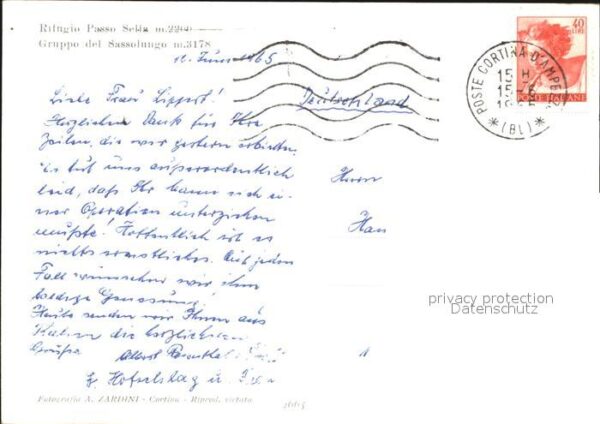 Rifugio Passo Sella m.2200
Gruppo del Sassolungo m.3178
12. Juni 1965
Liebe Frau Lippert!
Herzlichen Dank für Ihre
Zeilen, die wir gestern erhielten.
Es tut uns ausserordentlich
leid, daß Ihr Mann sich ei-
ner Operation unterziehen
mußte! Hoffentlich ist es
nichts ernstliches. Auf jeden
Fall wünschen wir ihm
baldige Genesung!
Heute senden wir Ihnen aus
Italien die herzlichsten
Grüße
Albert
Deutschland
Herrn
Han
40
LIRE
POSTE ITALIANE
POSTE CORTINA D'AMPEZZO
15 H
15-6
(BL)
privacy protection
Datenschutz
Fotografia A. ZARDINI - Cortina - Riprod. vietata